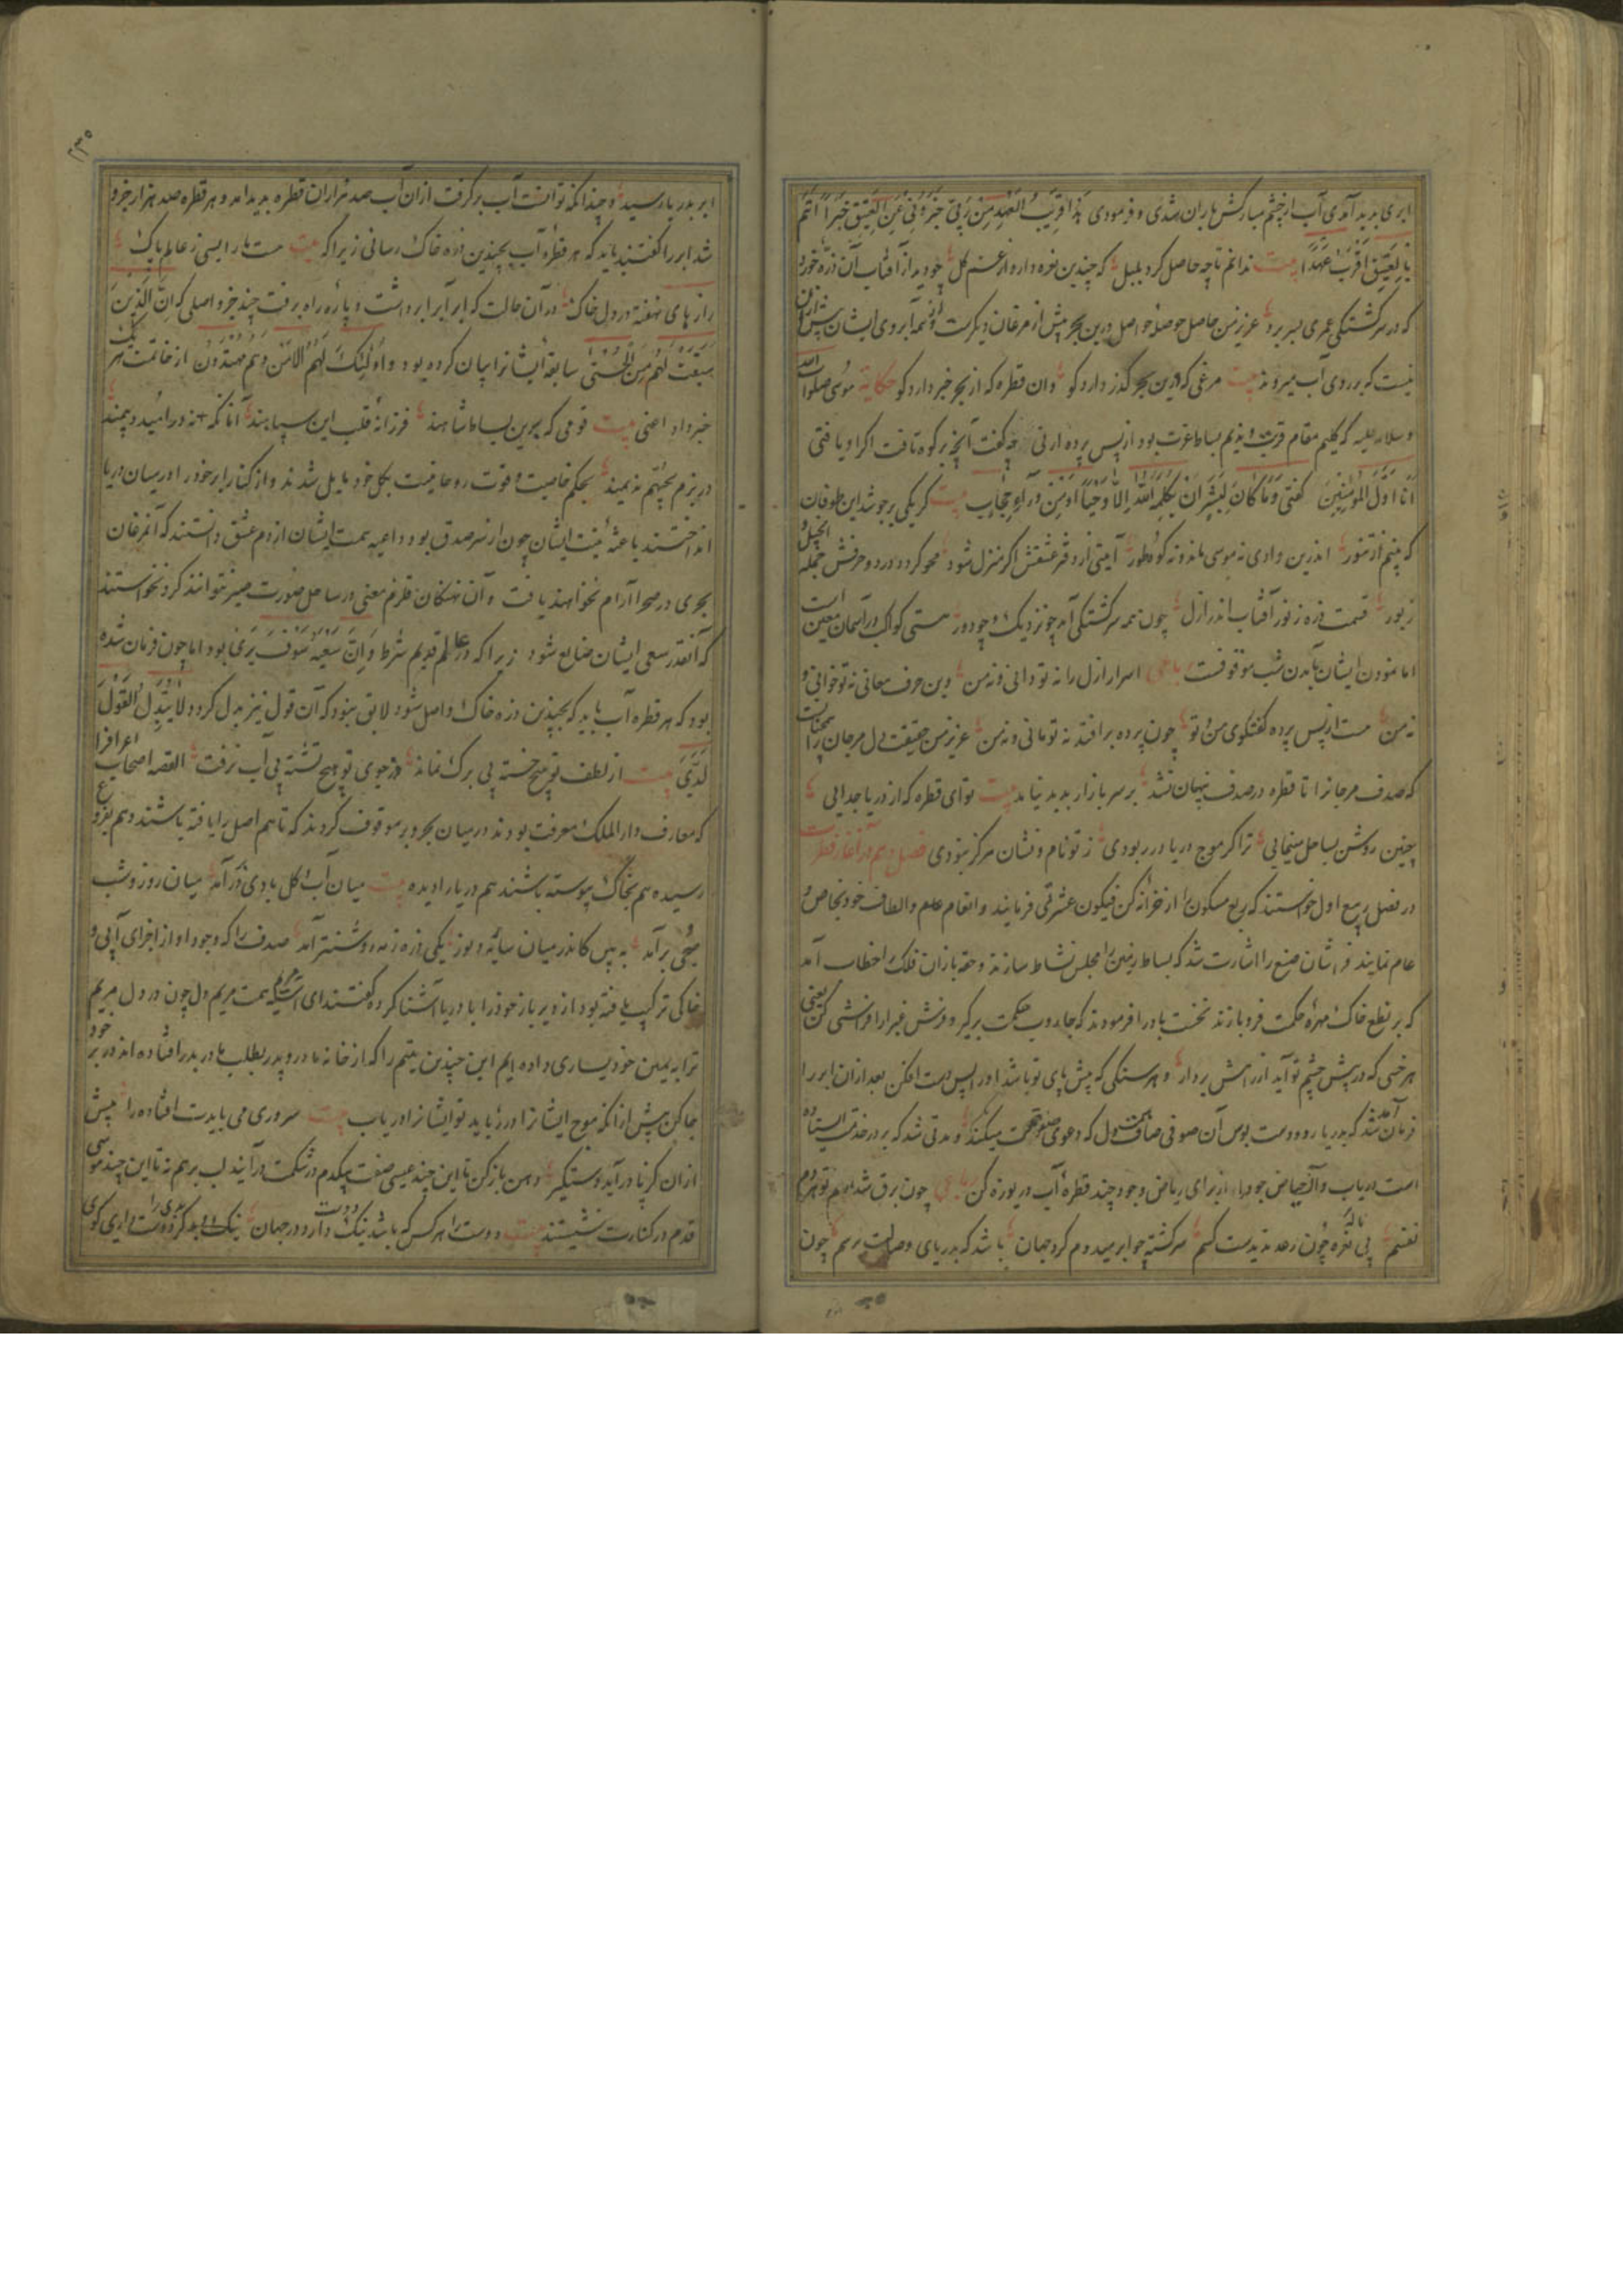 ابری پدید آمدی آب از چشم مبارکش باران شدی و فرمودی هذا قریب العهد من ربی خبرونی عن العقیق خبرا انتم
بالعقیق اقرب عهدا بیت ندانم تا چه حاصل کرد بلبل که چندین نعره دارد از غم گل چو دید از آفتاب آن ذره خورد
که در سرگشتگی عمری بسر برد عزیز من حاصل حوصلهٔ حواصل درین بحر بیش از مرغان دیگرست و همه آبروی ایشان بیش ازان
نیست که بر روی آب میروند بیت مرغی که ازین بحر گذر دارد کو وان قطره که از بحر خبر دارد کو حکایت موسی صلوات الله
و سلامه علیه که کلیم مقام قربت و ندیم بساط عزت بود از پس پرده ارنی چه گفت آنچه بر کوه تافت اگر او یافتی
انا اول المؤمنین گفتی و ما کان لبشر ان یکلمه الله الا وحیا او من وراء حجاب بیت گر یکی بر جوشد این طوفان
که بینم از تنور اندرین وادی نه موسی ماند و نه کوه طور آیتی از دفتر عشقش اگر منزل شود محو گردد در دو حرفش جمله انجیل و
زبور قسمت ذره ز نور آفتاب اندر ازل چون همه سرگشتگی آمد چه نزدیک و چه دور هستی کواکب در آسمان معین است
اما نمودن ایشان بآمدن شب موقوفست رباعی اسرار ازل را نه تو دانی و نه من وین حرف معانی نه تو خوانی و
نه من هست از پس پرده گفتگوی من و تو چون پرده بر افتد نه تو مانی و نه من عزیز من حقیقت دل مرجان را همچنانست
که صدف مرجانرا تا قطره در صدف پنهان نشد بر سر بازار پدید نیامد بیت تو ای قطره که از دریا جدایی
چنین روشن بساحل مینمایی ترا گر موج دریا در ربودی ز تو نام و نشان هرگز نبودی فصل دهم در آغاز فطرت
در فصل ربیع اول خواستند که ربع مسکون را از خزانهٔ کن فیکون عشرتی فرمایند و انعام عام و الطاف خود بخاص و
عام نمایند فراشان صنع را اشارت شد که بساط زمین را مجلس نشاط سازند و حقه بازان فلک را خطاب آمد
که بر نطع خاک مهرهٔ حکمت فرو بازند نخست باد را فرمودند که جاروب حکمت برگیر و فرش غبرا را فراشی کن یعنی
هر خسی که در پیش چشم تو آید از راهش بردار و هر سنگی که پیش پای تو باشد او را پس دست افکن بعد ازان ابر را
فرمان آمد که بدریا رو و دست بوس آن صوفی صافی دل که دعوی صفوت میکند و مدتی شد که بر در خدمت ایستاده
است دریاب و از حیاض جود او از برای ریاض وجود چند قطره آب دریوزه کن رباعی چون برق شد ارم تو هر دم
نفسم بی ناله و نعره چون رعد نه بدست کسم سرگشته چو ابر میدوم گرد جهان باشد که بدریای وصالت برسم چون
۲۳۵
ابر بدریا رسید و چندانکه توانست آب برگرفت ازان آب صد هزاران قطره پدید آمد و هر قطره صد هزار جزو
شد ابر را گفتند باید که هر قطرهٔ آب بچندین ذره خاک رسانی زیرا که بیت هست ما را بسی ز عالم پاک
راز های نهفته در دل خاک در آن حالت که ابر آب برداشت و پاره راه برفت چند جزو اصلی که ان الذین
سبقت لهم منا الحسنی سابقهٔ ایشانرا بیان کرده بود و اولئک لهم الامن و هم مهتدون از خاتمت هر یک
خبر داد اعنی بیت قومی که برین بساط شاهند فرزانهٔ قلب این سپاهند آنانکه نه در امید و بیمند
در بزم یحبهم ندیمند بحکم خاصیت و قوت روحانیت بکل خود مایل شدند و از کنار ابر خود را در میان دریا
انداختند باعثهٔ نیت ایشان چون از سر صدق بود و داعیه همت ایشان از دم عشق دانستند که آن مرغان
بحری در صحرا آرام نخواهند یافت و آن نهنگان قلزم معنی در ساحل صورت صبر نتوانند کرد نخواستند
که آنقدر سعی ایشان ضایع شود زیرا که در عالم قدیم شرط و ان سعیه سوف یری بود اما چون فرمان شده
بود که هر قطره آب باید که بچندین ذره خاک واصل شود لایق نبود که آن قول نیز بدل گردد لا یبدل القول
لدی بیت از لطف تو هیچ خسته بی برگ نماند وز جوی تو هیچ تشنه بی آب نرفت القصه اصحاب اعراف را
که معارف دار الملک معرفت بودند در میان بحر و بر موقوف کردند که تا هم اصل را یافته باشند و هم بفرع
رسیده هم بخاک پیوسته باشند هم دریا را دیده بیت میان آب و گل بادی در آمد میان روز و شب
صبحی بر آمد به بین کاندر میان سایه و نور یکی ذره ز مه روشنتر آمد صدف را که وجود او از اجزای آبی و
خاکی ترکیب یافته بود از دیر باز خود را با دریا آشنا کرده گفتند ای همت مریم دل چون در دل مریم
ترا بر یمین خود یساری داده ایم این چندین یتیم را که از خانه مادر و پدر بطلب ما در بدر افتاده اند در بر خود
جا کن پیش از آنکه موج ایشانرا در رباید تو ایشانرا دریاب بیت سروری می بایدت افتاده را پیش
ازان کز پا در آید دستگیر دهن باز کن تا این چند عیسی صفت یکدم در شکمت در آیند لب بر هم نه تا این چند موسی
قدم در کنارت نشیند بیت دوست را هر کس که باشد نیک دارد در جهان نیک اگر دوست داری گوی